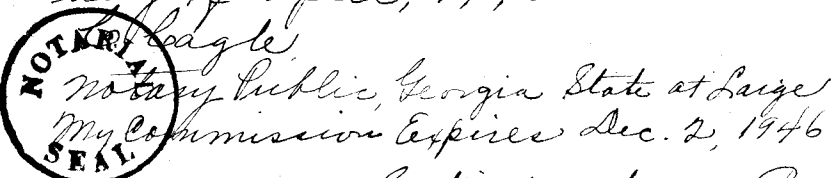 Cagle
Notary Public, Georgia State at Large
My Commission Expires Dec. 2, 1946
NOTARIAL
SEAL